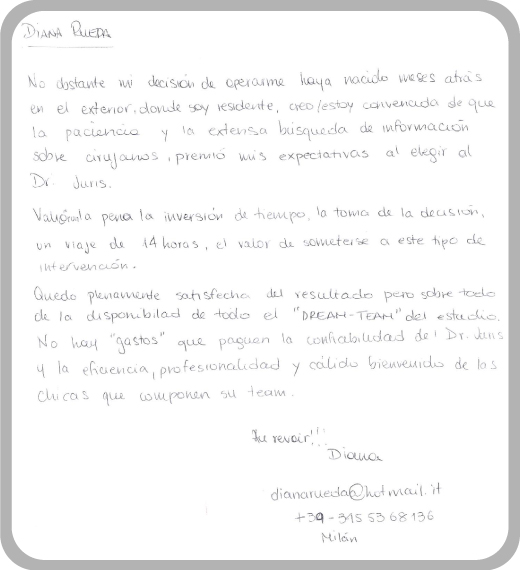 DIANA RUEDA
No obstante mi decisión de operarme haya nacido meses atrás
en el exterior, donde soy residente, creo/estoy convencida de que
la paciencia y la extensa búsqueda de información
sobre cirujanos, premió mis expectativas al elegir al
Dr. Juris.
Valió la pena la inversión de tiempo, la toma de la decisión,
un viaje de 14 horas, el valor de someterse a este tipo de
intervención.
Quedo plenamente satisfecha del resultado pero sobre todo
de la disponibilad de todo el "DREAM-TEAM" del estudio.
No hay "gastos" que paguen la confiabilidad del Dr. Juris
y la eficiencia, profesionalidad y cálido bienvenido de las
chicas que componen su team.
Au revoir!!!
Diana
dianarueda@hotmail.it
+39-345 53 68 136
Milán